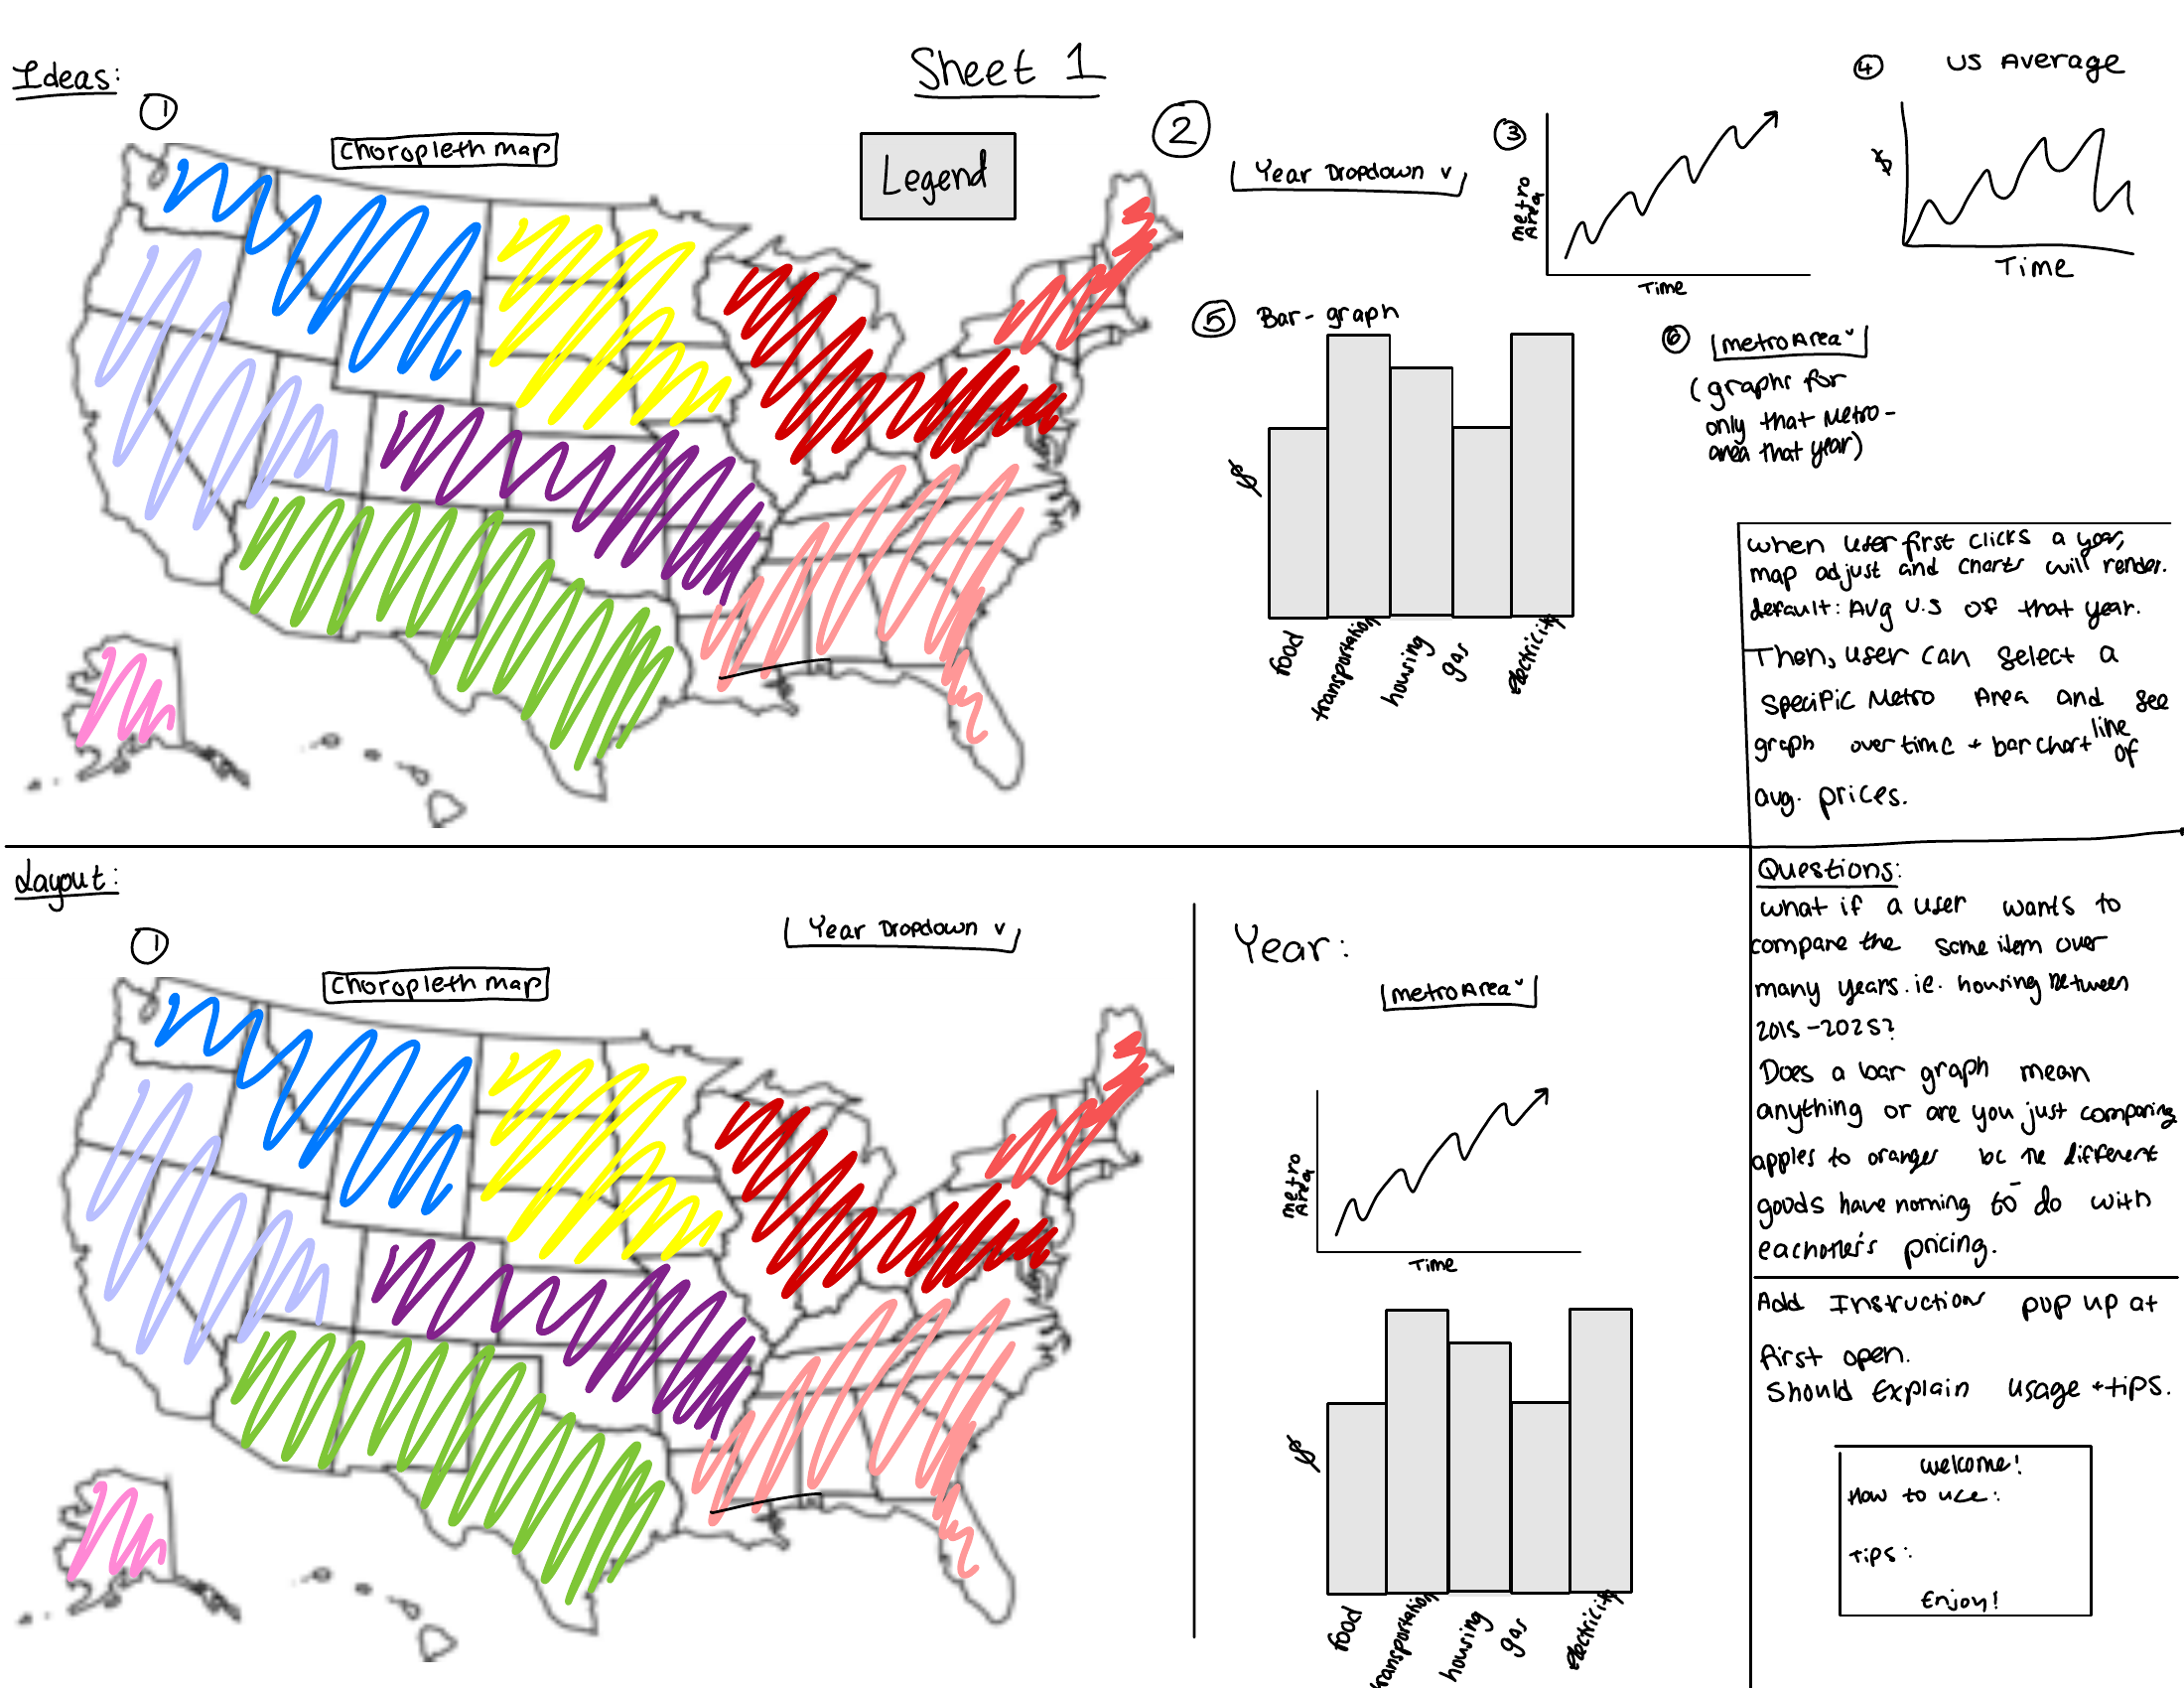 Sheet 1
Ideas:
1
Choropleth map
Legend
2
Year Dropdown v
3
Metro
Area
Time
4
US Average
$
Time
5
Bar-graph
$
food
transportation
housing
gas
electricity
6
metroArea
(graphs for
only that Metro-
area that year)
when user first clicks a year,
map adjust and charts will render.
default: Avg U.S of that year.
Then, user can select a
specific Metro Area and see
line
graph over time + bar chart of
avg. prices.
Layout:
1
Choropleth map
Year Dropdown v
Year:
metroArea
metro
Area
Time
$
food
transportation
housing
gas
electricity
Questions:
what if a user wants to
compare the same item over
many years. ie. housing between
2015-2025?
Does a bar graph mean
anything or are you just comparing
apples to oranges bc the different
goods have nothing to do with
eachother's pricing.
Add Instruction pop up at
first open.
Should Explain usage + tips.
Welcome!
How to use:
Tips:
Enjoy!